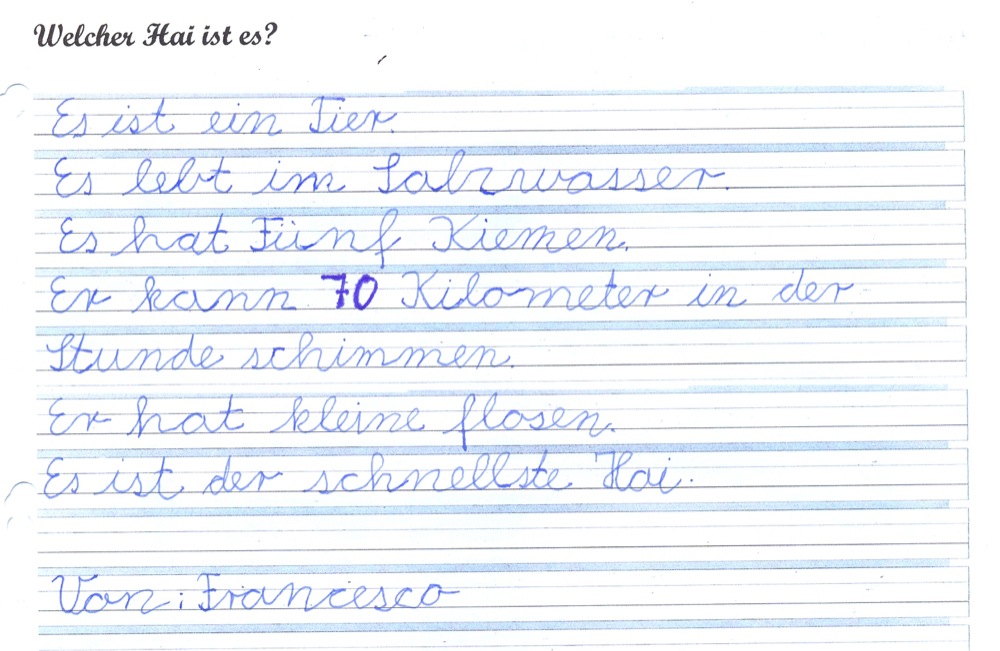 Welcher Hai ist es?
Es ist ein Tier.
Es lebt im Salzwasser.
Es hat Fünf Kiemen.
Er kann 70 Kilometer in der
Stunde schimmen.
Er hat kleine flosen.
Es ist der schnellste Hai.
Von: Francesco